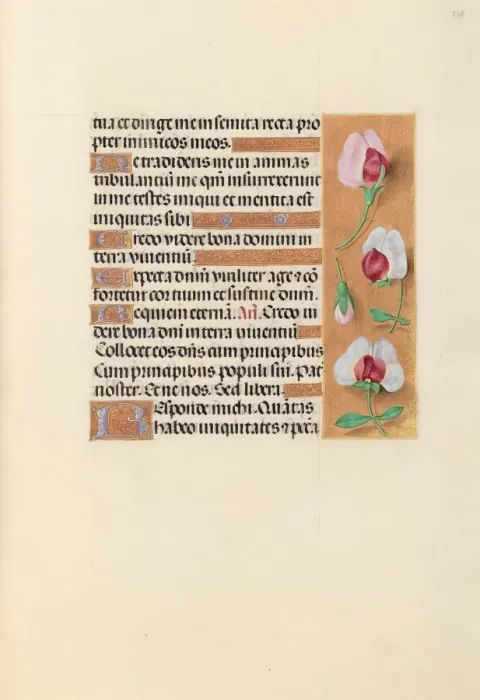 tua et dirige me in semita recta pro
pter inimicos meos.
Ne tradideris me in animas
tribulantiũ me qm̃ insurrexerunt
in me testes iniqui et mentita est
iniquitas sibi
Credo videre bona domini in
terra viventiũ
Expecta dñm viriliter age ⁊ cõ
fortetur cor tuum et sustine dñm.
Requiem eternã. Añ. Credo vi
dere bona dñi in terra viventiũ
Collocet eos dñs cum principibus
Cum principibus populi sui. Pat̃
noster. Et ne nos. Sed libera.
Responde michi. Quãtas
habeo iniquitates ⁊ pccã